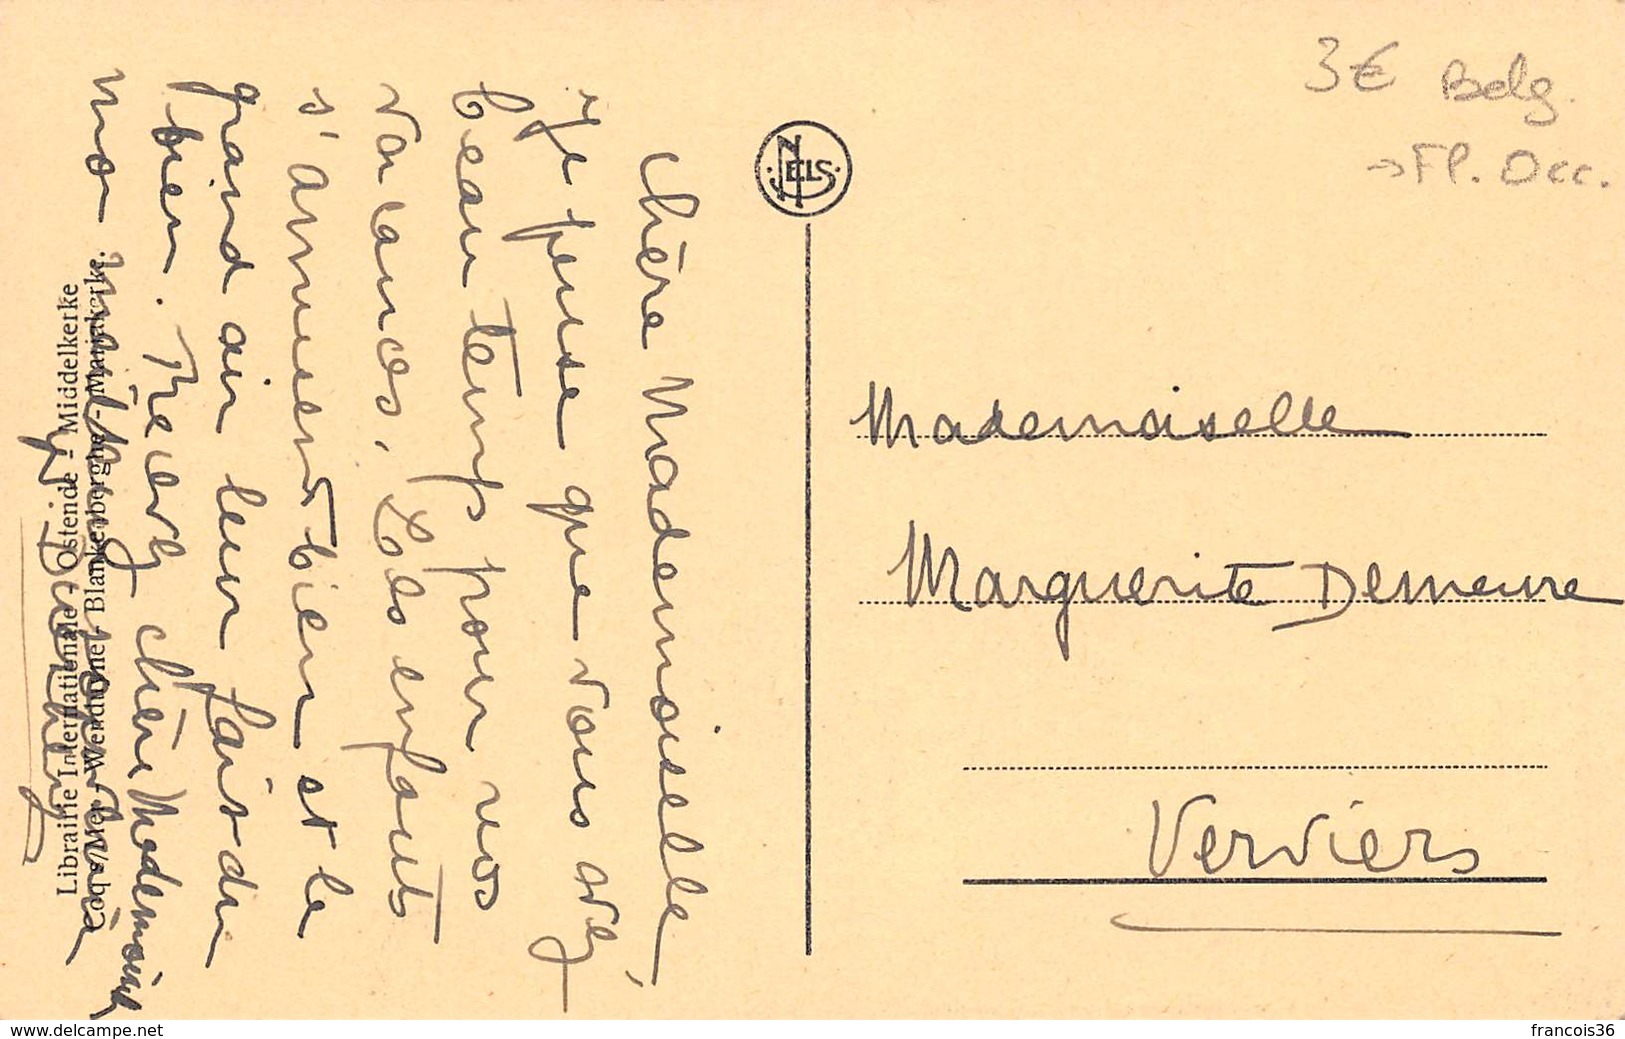 Chère Mademoiselle,
Je pense que vous avez
beau temps pour vos
vacances. Les enfants
s'amusent bien et le
grand air leur fait du
bien. Recevez chère Mademoiselle
mon
Librairie Internationale - Ostende - Middelkerke
Coq s/Mer - Wenduyne - Blankenberghe - Mariakerke.
NELS
3€ Belg.
→ Fl. Occ.
Mademoiselle
Marguerite Demeure
Verviers
www.delcampe.net
francois36